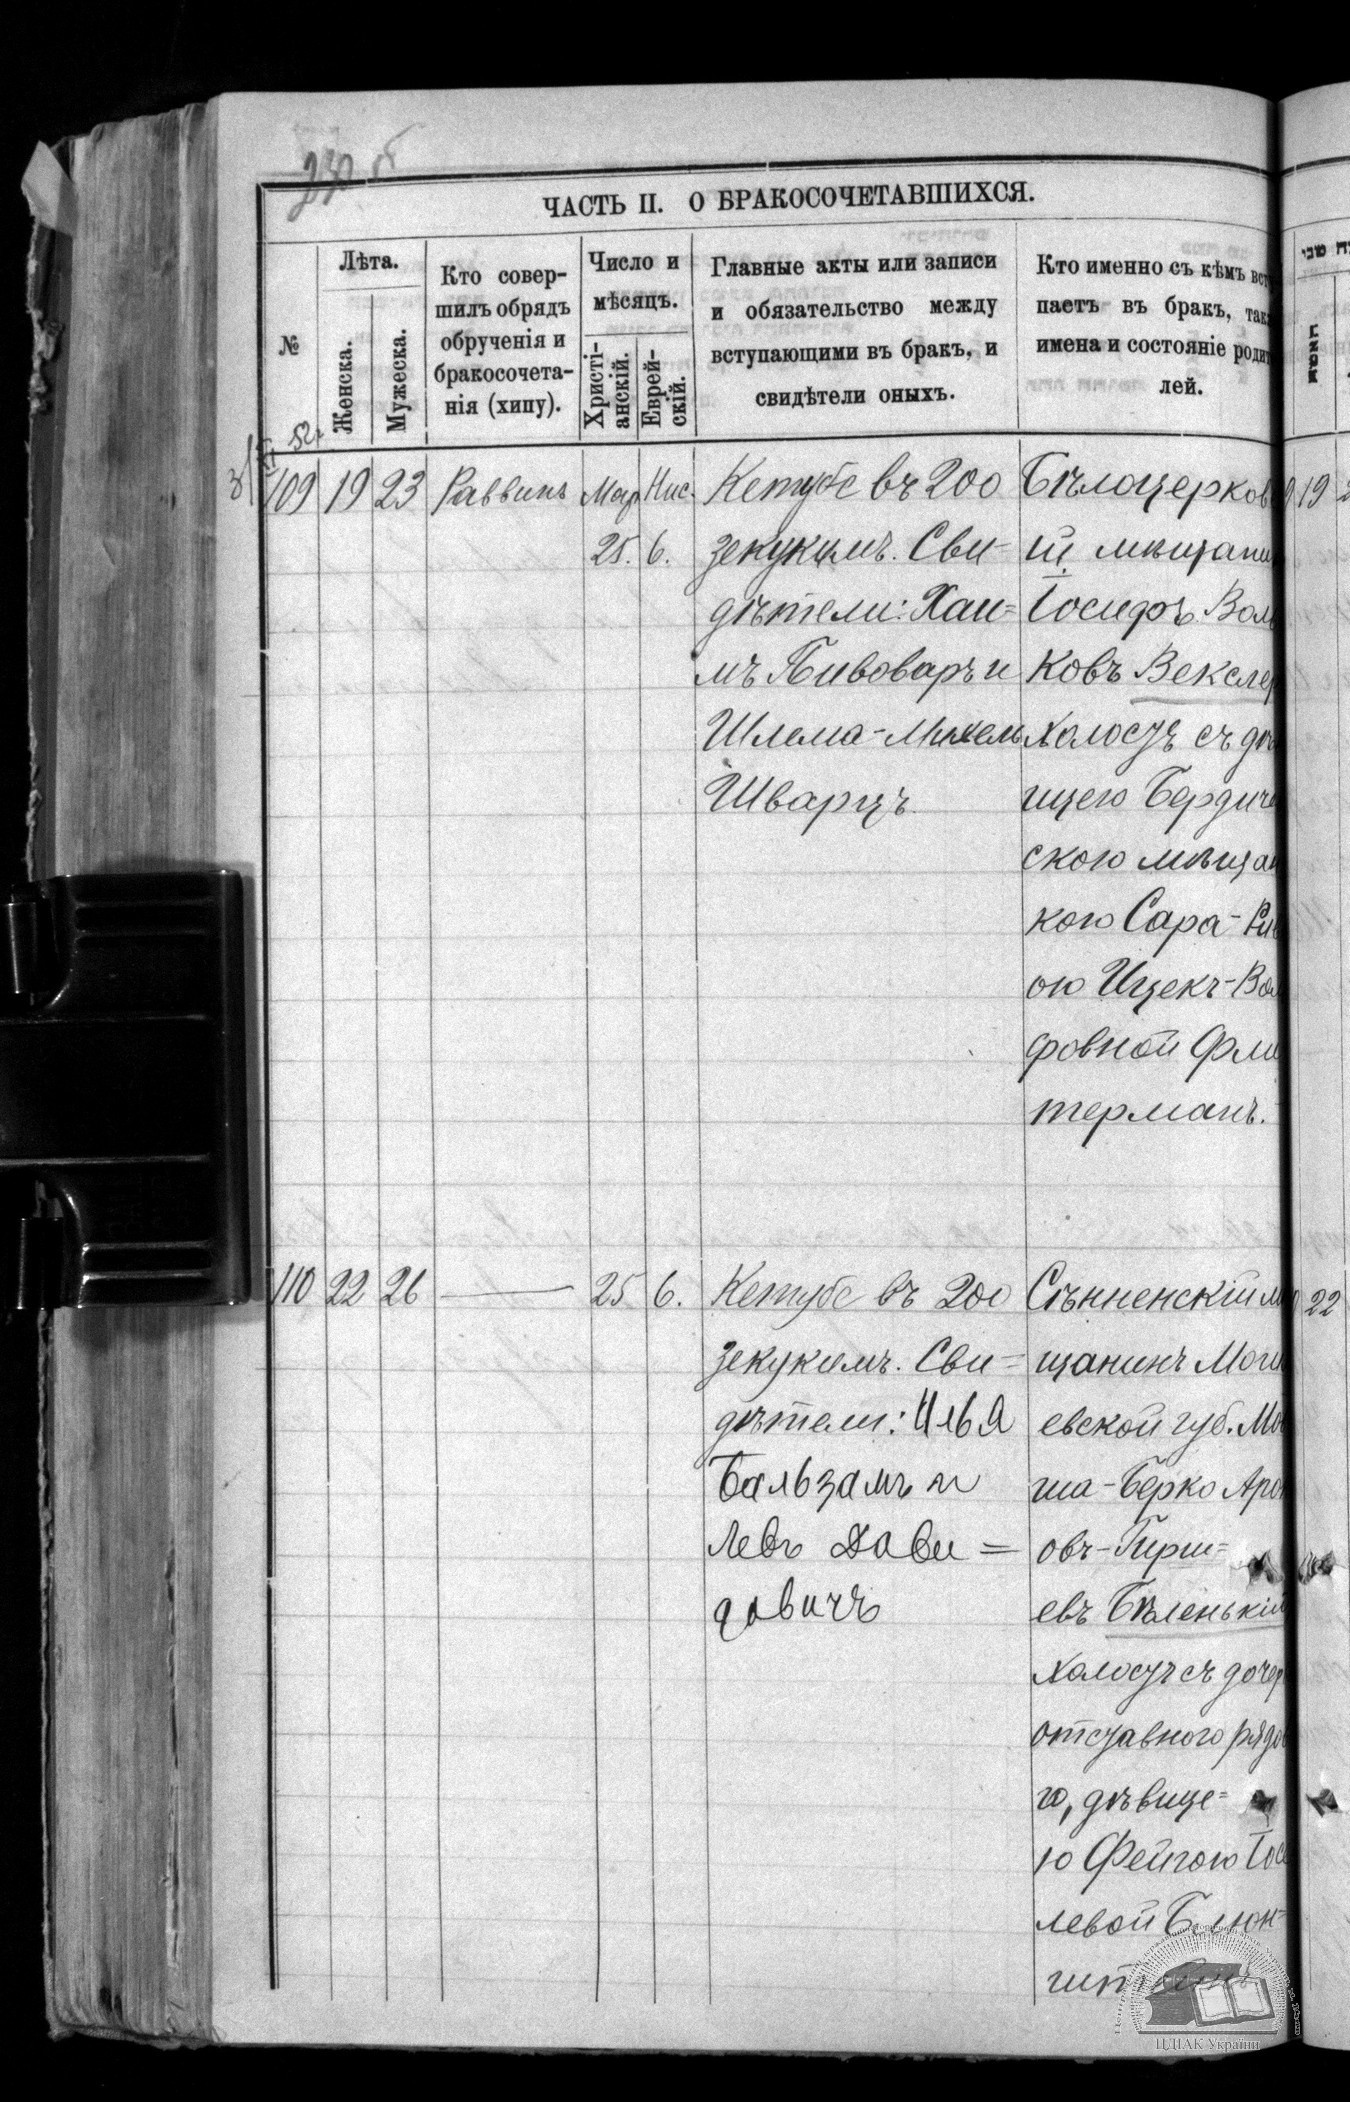 230 об
ЧАСТЬ II. О БРАКОСОЧЕТАВШИХСЯ.
№
Лѣта.
Женска.
Мужеска.
Кто совер-
шилъ обрядъ
обрученія и
бракосочета-
нія (хипу).
Число и
мѣсяцъ.
Христі-
анскій.
Еврей-
скій.
Главные акты или записи
и обязательство между
вступающими въ бракъ, и
свидѣтели оныхъ.
Кто именно съ кѣмъ вст
паетъ въ бракъ, так
имена и состояніе родит
лей.
109 19 23 Раввинъ Мар. Нис.
25. 6.
Кетубе въ 200
зекукимъ. Сви-
дѣтели: Хаи=
мъ Пивоваръ и
Шлема-Михель
Шварцъ.
Бѣлоцерков
ій мѣщанин
Іосифъ Воль
ковъ Векслер
холостъ съ дѣв
ицею Бердиче
скою мѣщан
кою Сара-Рив
ою Ицекъ-Вол
фовной Фли
терманъ.
110 22 26 — 25 6.
Кетубе въ 200
зекукимъ. Сви=
дѣтели: Илья
Бальзамъ и
Левъ Дави=
довичъ
Сѣнненскій м
щанинъ Могил
евской губ. Мо
ша-Берко Арон
овъ-Гирш=
евъ Бѣленькій
холостъ съ дочер
отставного рядов
го, дѣвице=
ю Фейгою Іосе
левой Блюн=
штейнъ
19
22
ЦДІАК України